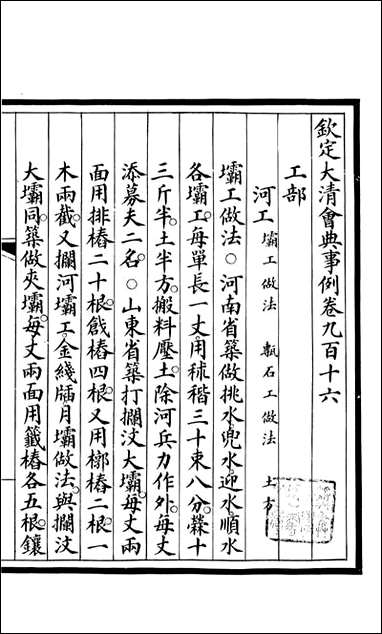 欽定大清會典事例卷九百十六
工部
河工 壩工做法 甎石工做法 土方
壩工做法○河南省築做挑水兜水迎水順水
各壩工每單長一丈用秫稭三十束八分䌫十
三斤半土半方搬料壓土除河兵力作外每丈
添募夫二名○山東省築打攔汶大壩每丈兩
面用排樁二十根戧樁四根又用槨樁二根一
木兩截又攔河壩工金綫牐月壩做法與攔汶
大壩同築做夾壩每丈兩面用籤樁各五根鑲